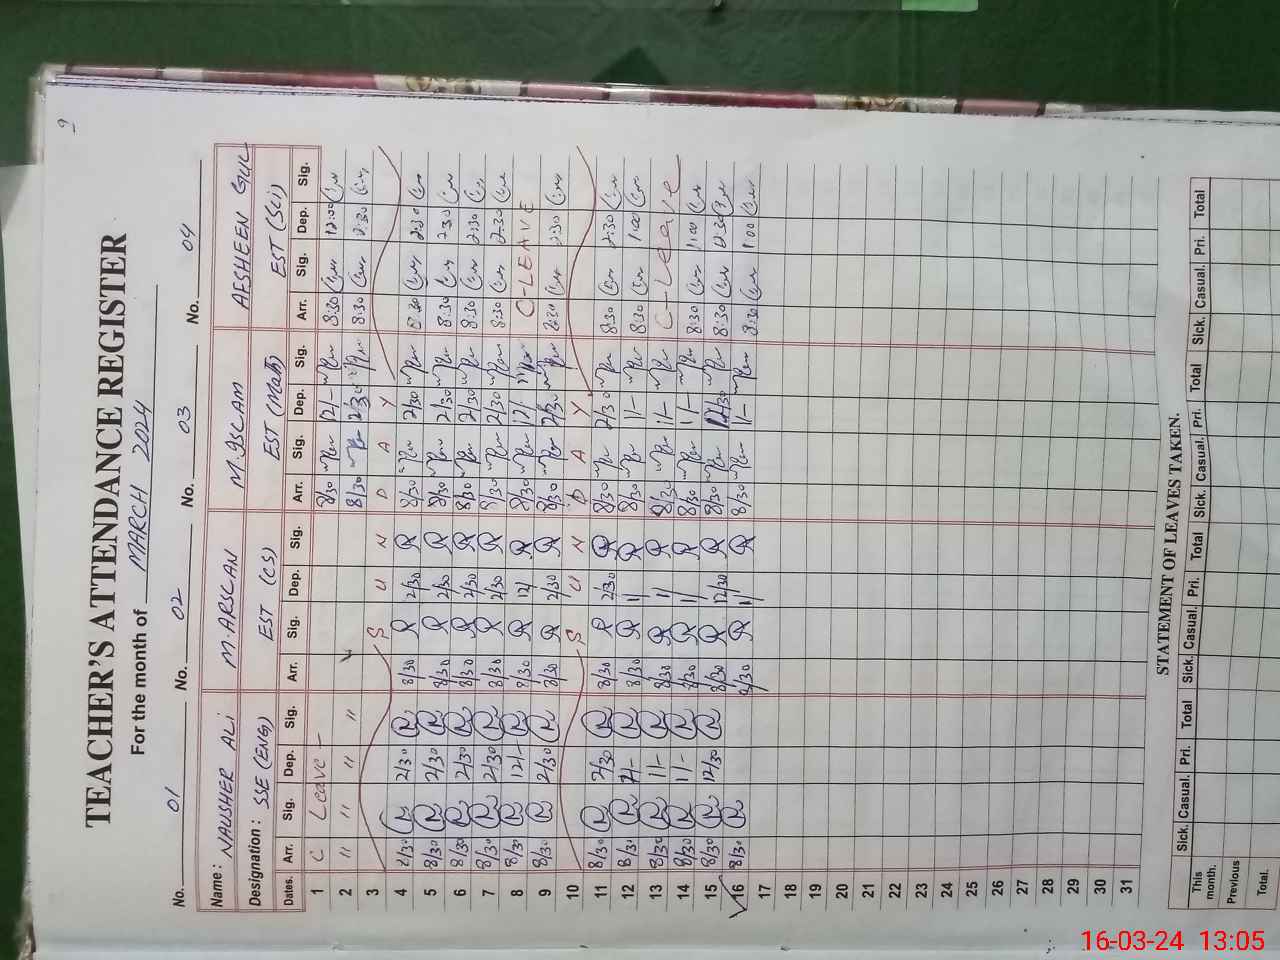 9
TEACHER'S ATTENDANCE REGISTER
For the month of MARCH 2024
No. 01 No. 02 No. 03 No. 04
Name: NAUSHER ALI M. ARSLAN M. ASLAM AFSHEEN GUL
Designation: SSE (ENG) EST (CS) EST (Math) EST (Sci)
Dates. Arr. Sig. Dep. Sig. Arr. Sig. Dep. Sig. Arr. Sig. Dep. Sig. Arr. Sig. Dep. Sig.
1 C Leave - 8/30 12/- 8:30 12:00
2 " " " " 8/30 2/30 8:30 2:30
3 S U N D A Y
4 8/30 2/30 8/30 2/30 8/30 2/30 8:30 2:30
5 8/30 2/30 8/30 2/30 8/30 2/30 8:30 2:30
6 8/30 2/30 8/30 2/30 8/30 2/30 8:30 2:30
7 8/30 2/30 8/30 2/30 8/30 2/30 8:30 2:30
8 8/30 12/- 8/30 12/ 8/30 12/ C-LEAVE
9 8/30 2/30 8/30 2/30 8/30 2/30 8:30 2:30
10 S U N D A Y
11 8/30 2/30 8/30 2/30 8/30 2/30 8:30 2:30
12 8/30 8/30 1/ 8/30 1/- 8:30 1:00
13 8/30 1/- 8/30 1/ 8/30 1/- C-Leave
14 8/30 1/- 8/30 1/ 8/30 1/- 8:30 1:00
15 8/30 12/30 8/30 12/30 8/30 12/30 8:30 12:30
16 8/30 8/30 1/ 8/30 1/- 8:30 1:00
17
18
19
20
21
22
23
24
25
26
27
28
29
30
31
STATEMENT OF LEAVES TAKEN.
Sick. Casual. Pri. Total Sick. Casual. Pri. Total Sick. Casual. Pri. Total Sick. Casual. Pri. Total
This month.
Previous
Total.
16-03-24 13:05